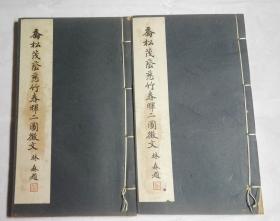 喬松茂蔭慈竹春暉二圖徵文 林森題
喬松茂蔭慈竹春暉二圖徵文 林森題